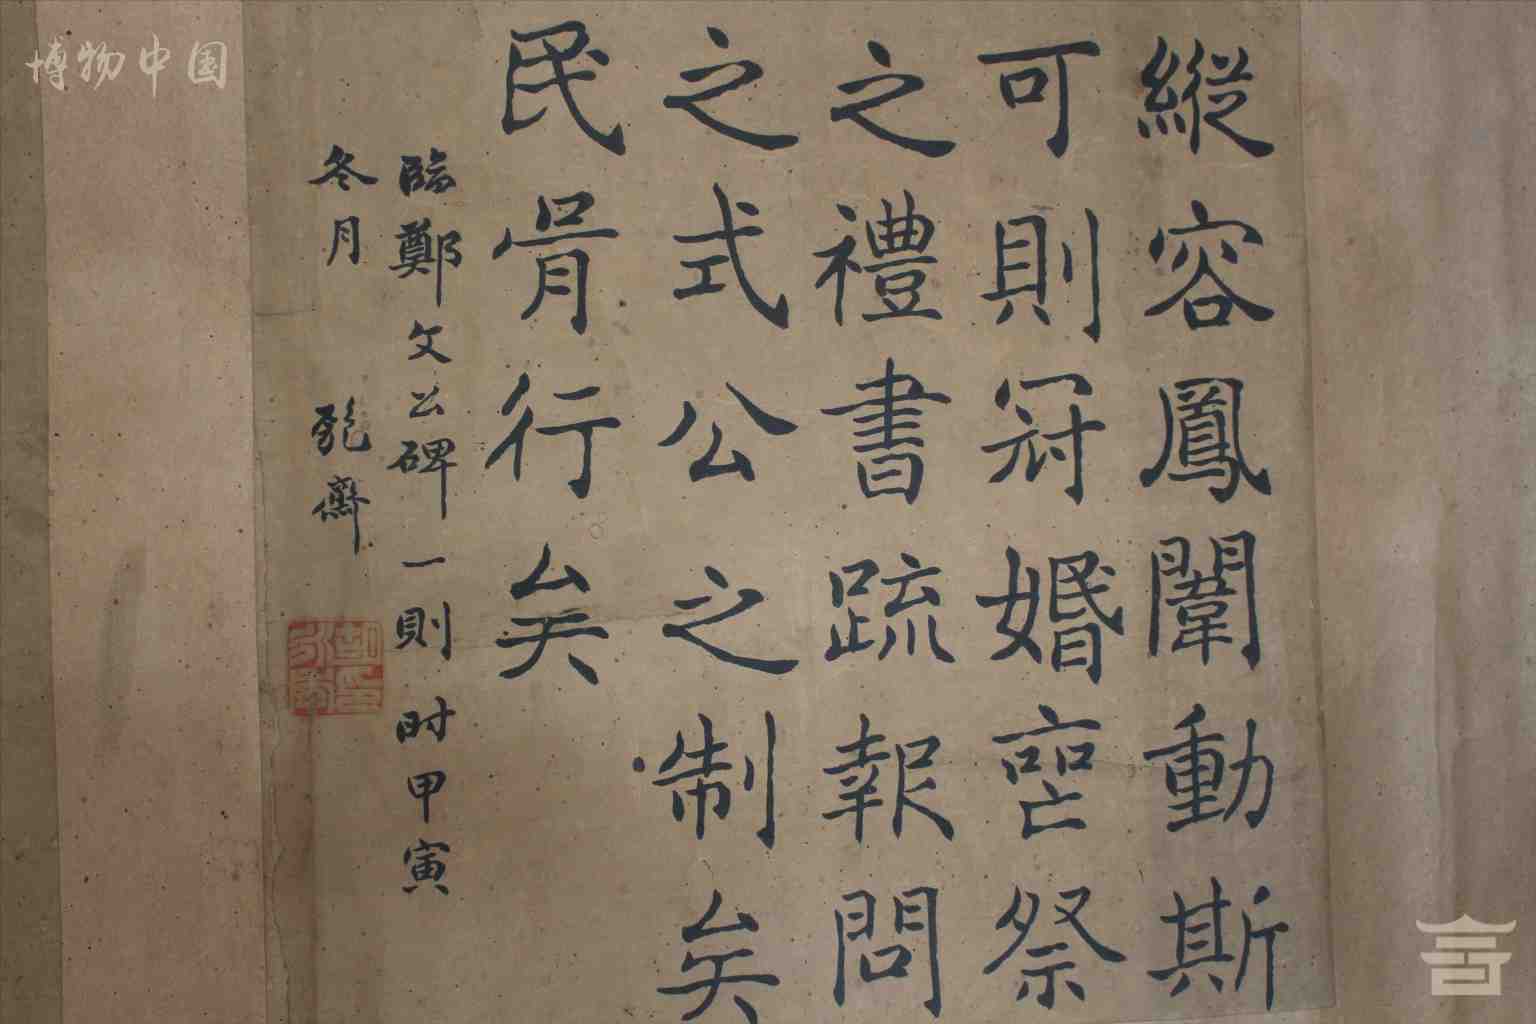 博物中国
縱容鳳闈動斯
可則冠婚喪祭
之禮書疏報問
之式公之制矣
民胥行矣
臨鄭文公碑一則时甲寅
冬月 匏齋